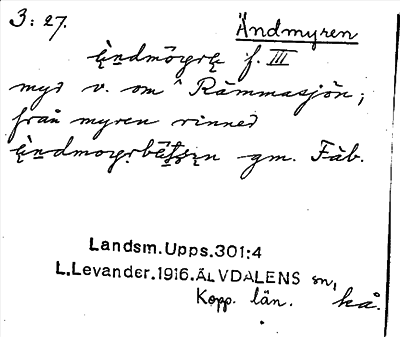 3:27. Ändmyren
ę̀ndmö̀yrę f. III
myr v. om Rämmasjön;
från myren rinner
gm. Fåb.
Landsm.Upps.301:4
L.Levander.1916.ÄLVDALENS sn,
Kopp. län. kå.